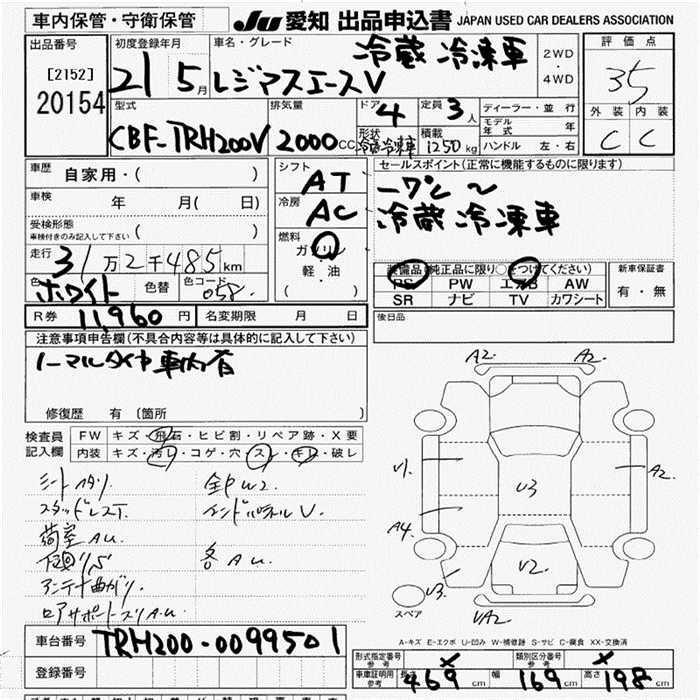 車内保管・守衛保管
JU 愛知 出品申込書 JAPAN USED CAR DEALERS ASSOCIATION
出品番号
[2152]
20154
初度登録年月
21 5月
車名・グレード
レジアスエースV 冷蔵冷凍車
2WD
・
4WD
評価点
35
外装 内装
C C
型式
CBF-TRH200V
排気量
2000cc
ドア
4
定員
3人
形状
冷蔵冷凍車
積載
1250kg
ディーラー・並行
モデル年式 年
ハンドル 左・右
車歴
自家用・( )
車検
年 月( 日)
受検形態
車検付きのみ記入して下さい ( )
走行
31万2千485km
色
ホワイト
色替
色コード
058
R券
11,960円
名変期限 月 日
シフト
AT
冷房
AC
燃料
ガソリン
・
軽・油
( )
セールスポイント(正常に機能するものに限ります)
冷蔵冷凍車
装備品(純正品に限り○をつけてください)
PS PW エアB AW
SR ナビ TV カワシート
新車保証書
有・無
後日品
注意事項申告欄(不具合内容等は具体的に記入して下さい)
ノーマルタイヤ車内有
修復歴 有 〔箇所 〕
検査員
記入欄
FW キズ・飛石・ヒビ割・リペア跡・X要
内装 キズ・汚レ・コゲ・穴・スレ・キレ・破レ
シートヘタリ
スタッドレスT.
荷室AU.
下廻りS
各AU.
アンテナ曲がり.
ロアサポートスリAU.
A2. A2.
V1.
U3
A2.
A4.
V3.
V2.
UA2.
スペア
A-キズ E-エクボ U-凹み W-補修跡 S-サビ C-腐食 XX-交換済
車台番号
TRH200-0099501
登録番号
形式指定番号
参考
X
類別区分番号
参考
X
車庫証明用
参考
長さ 469cm
幅 169cm
高さ 198cm